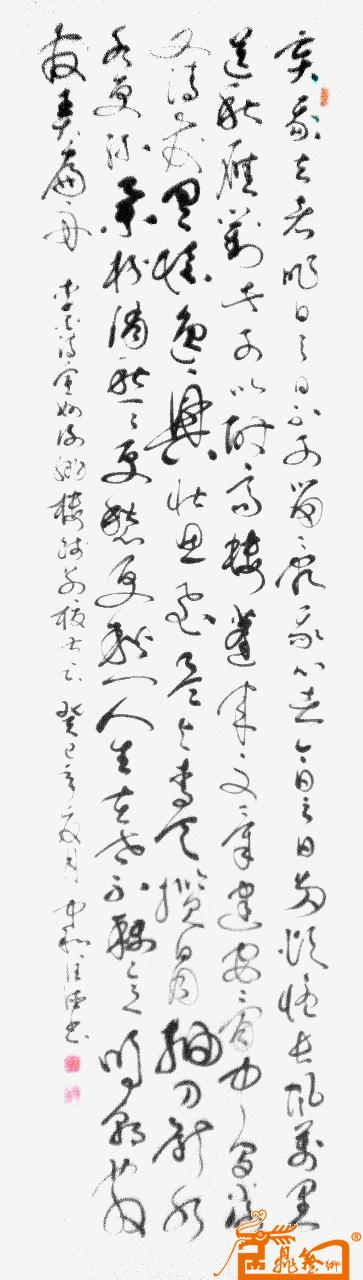 弃我去者昨日之日不可留乱我心者今日之日多烦忧长风万里
送秋雁对此可以酣高楼蓬莱文章建安骨中间小谢
又清发俱怀逸兴壮思飞欲上青天揽明月抽刀断水
水更流举杯销愁愁更愁人生在世不称意明朝散
发弄扁舟 李白诗宣州谢朓楼饯别校书 癸巳年夏月
鼎艺术